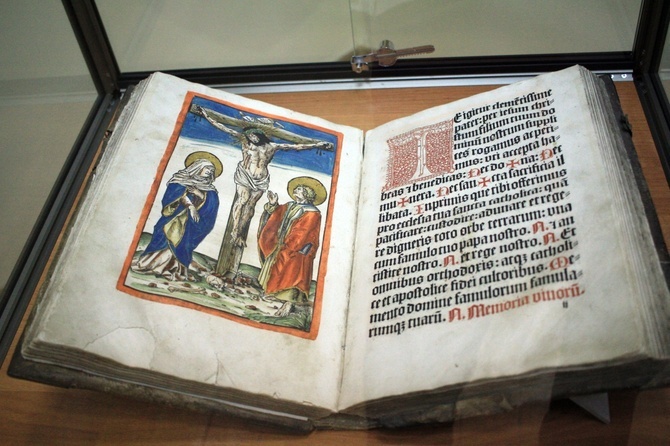 T
E igitur clemētissime
pater: per iesum chri
stum filium tuum do
minū nostrum supplí
ces rogamus ac pe
timus: vti accepta ha
beas ⁊ benedicas: Nec do ✠ na: Nec
mu ✠ nera: Nec san ✠ cta sacrificia il
libata. Inprimis que tibi offerimus
pro ecclesia tua sancta catholica: quā
pacificare: custodire: adunare et rege
re digneris toto orbe terrarum: vna
cum famulo tuo papa nostro. N. ⁊ an
tistite nostro. N. et rege nostro. N. Et
omnibus orthodoxis: atqꝫ catholi
ce et apostolice fidei cultoribus. Me
mento domine famulorum famula
rumqꝫ tuarū. N. Memoria vivorū.